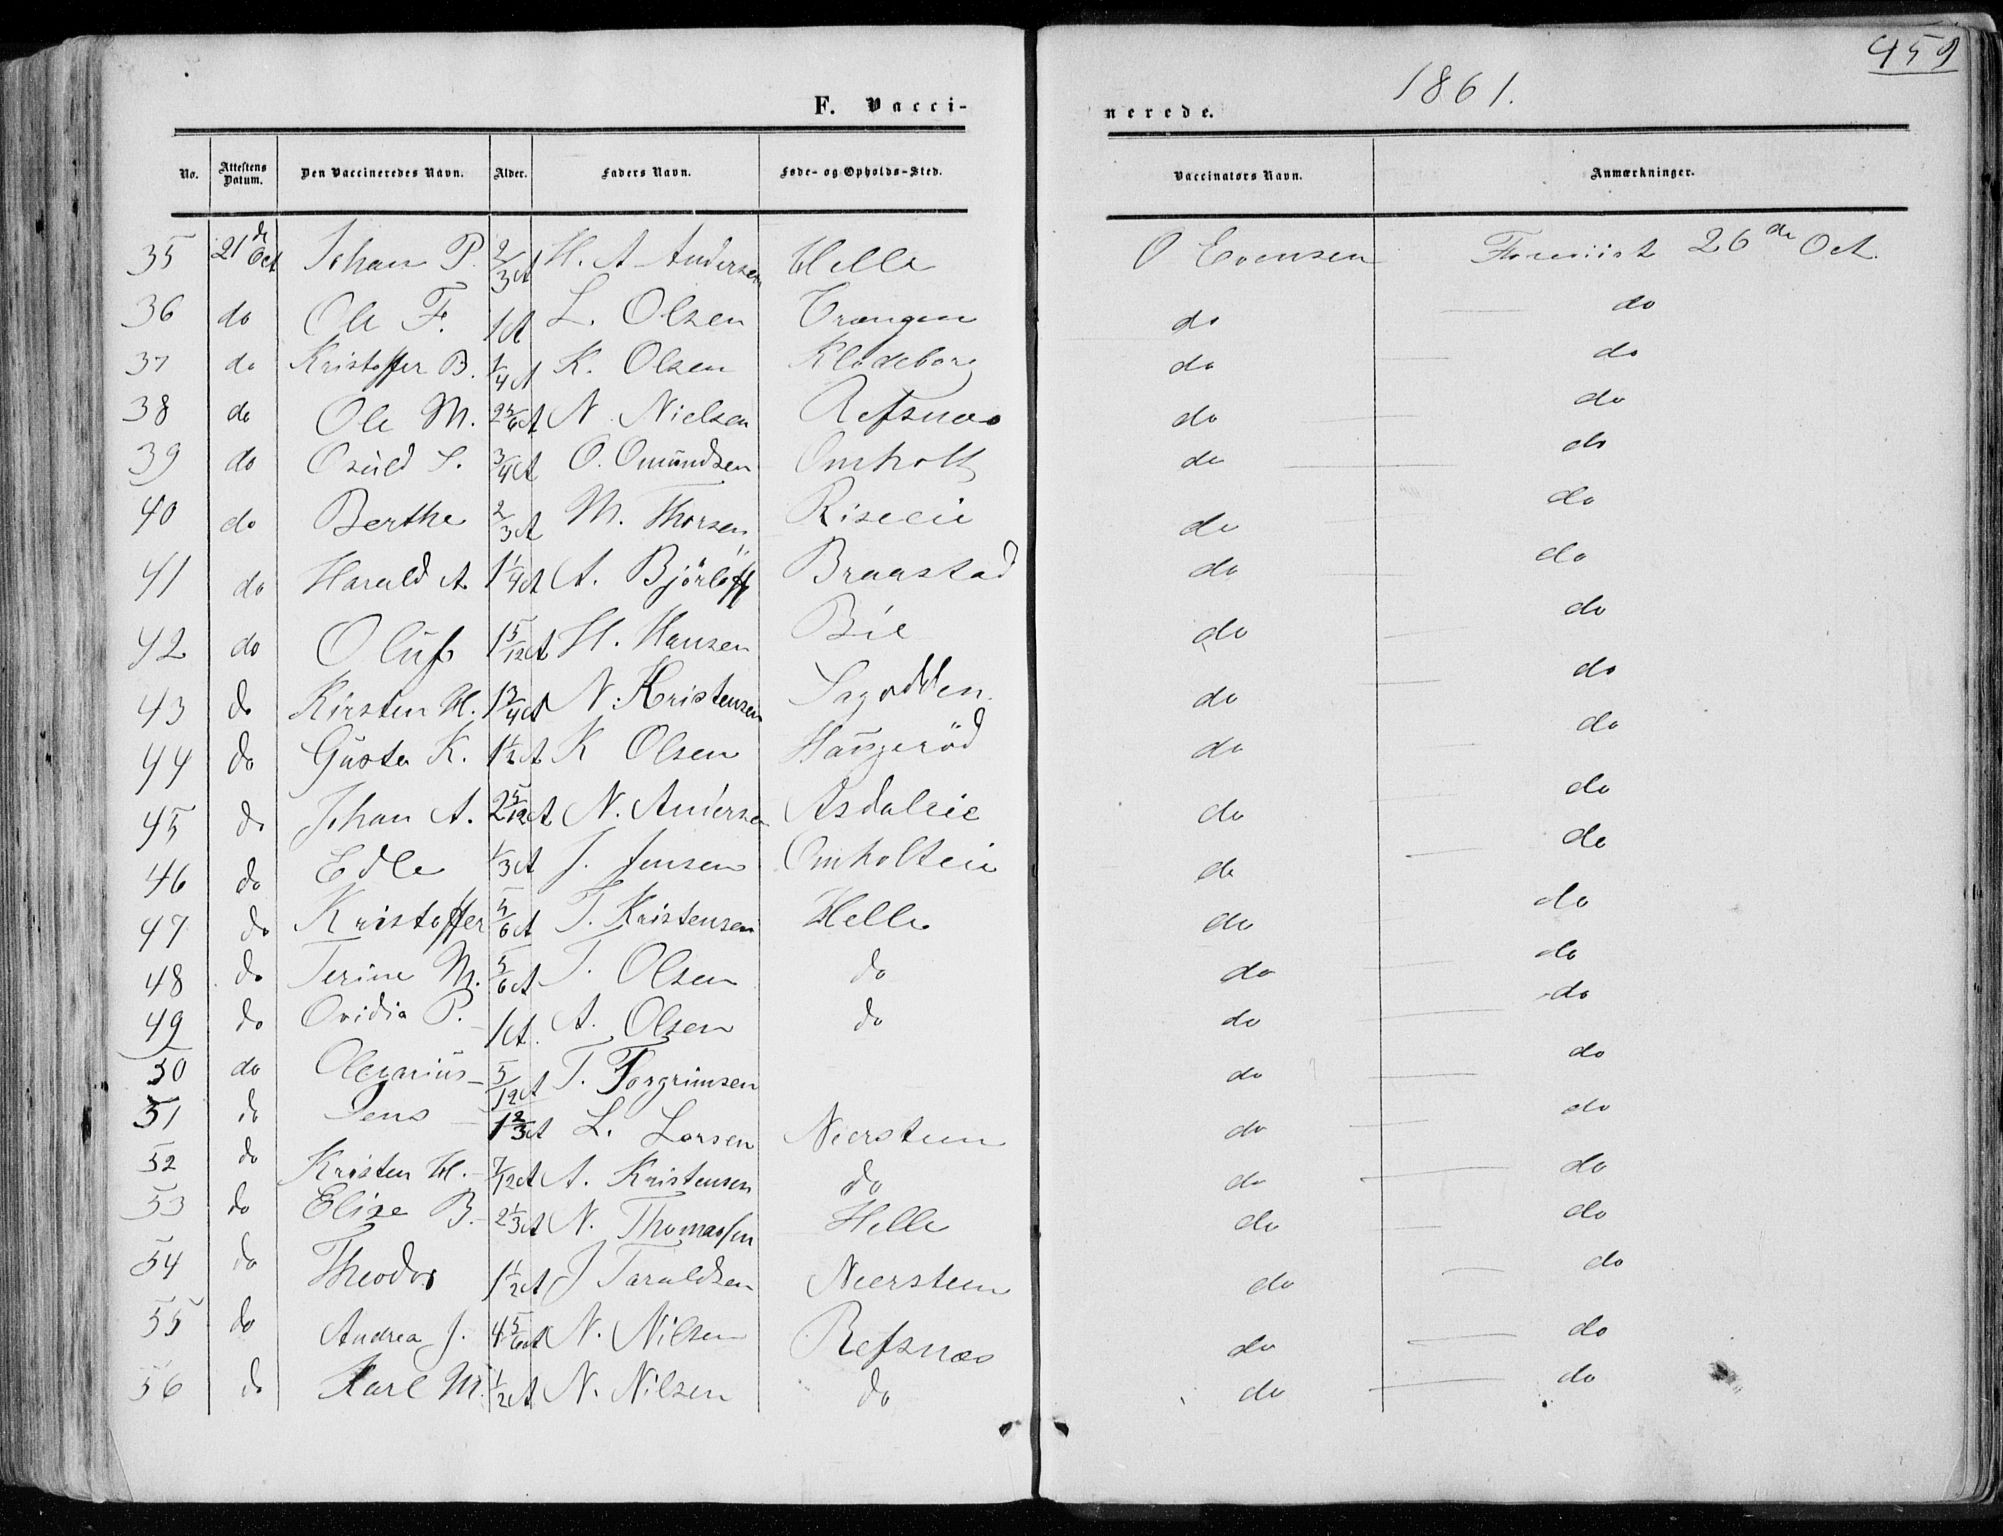 459
1861.
F. Vacci-
nerede.
No. Attestens Datum. Den Vaccineredes Navn. Alder. Faders Navn. Føde- og Opholds-Sted. Vaccinators Navn. Anmærkninger.
35 21de Oct Johan P. 2/3 A H. A Andersen Helle O Evensen Foreviist 26de Oct.
36 do Ole F. 1 A L. Olsen Trangen do do
37 do Kristoffer B. 1/4 A K. Olsen Klodeborg do do
38 do Ole M. 2 5/6 A N. Nielsen Refsnæs do do
39 do Osuld S. 3/4 A O. Omundsen Omholt do do
40 do Berthe 2/3 A M. Thorsen Riseeie do do
41 do Harald A 1 1/4 A A. Björløff Braastad do do
42 do Oluf 1 5/12 A H. Hansen Bie do do
43 do Kirsten H. 1 3/4 A N. Kristensen Sagodden. do do
44 do Gusta K. 1 1/2 A K Olsen Haugeröd do do
45 do Johan A. 2 5/12 A N. Andersen Asdaleie do do
46 do Edle 1/3 A J. Jensen Omholteie do do
47 do Kristoffer 5/6 A T. Kristensen Helle do do
48 do Terine M. 5/6 A T. Olsen do do do
49 do Ovidia P. 1 A. A. Olsen do do do
50 do Olevarius 5/12 A T. Torgrimsen do do
51 do Jens 1 2/3 A L. Larsen Neersteen do do
52 do Kristen H. 7/12 A A. Kristensen do do do
53 do Elise B. 2 1/3 A N. Thomassen Helle do do
54 do Theodor 1 1/2 A J Taraldsen Neersteen do do
55 do Andrea J. 4 5/6 A N. Nilsen Refsnæs do do
56 do Karl M. 1/2 A N. Nilsen do do do